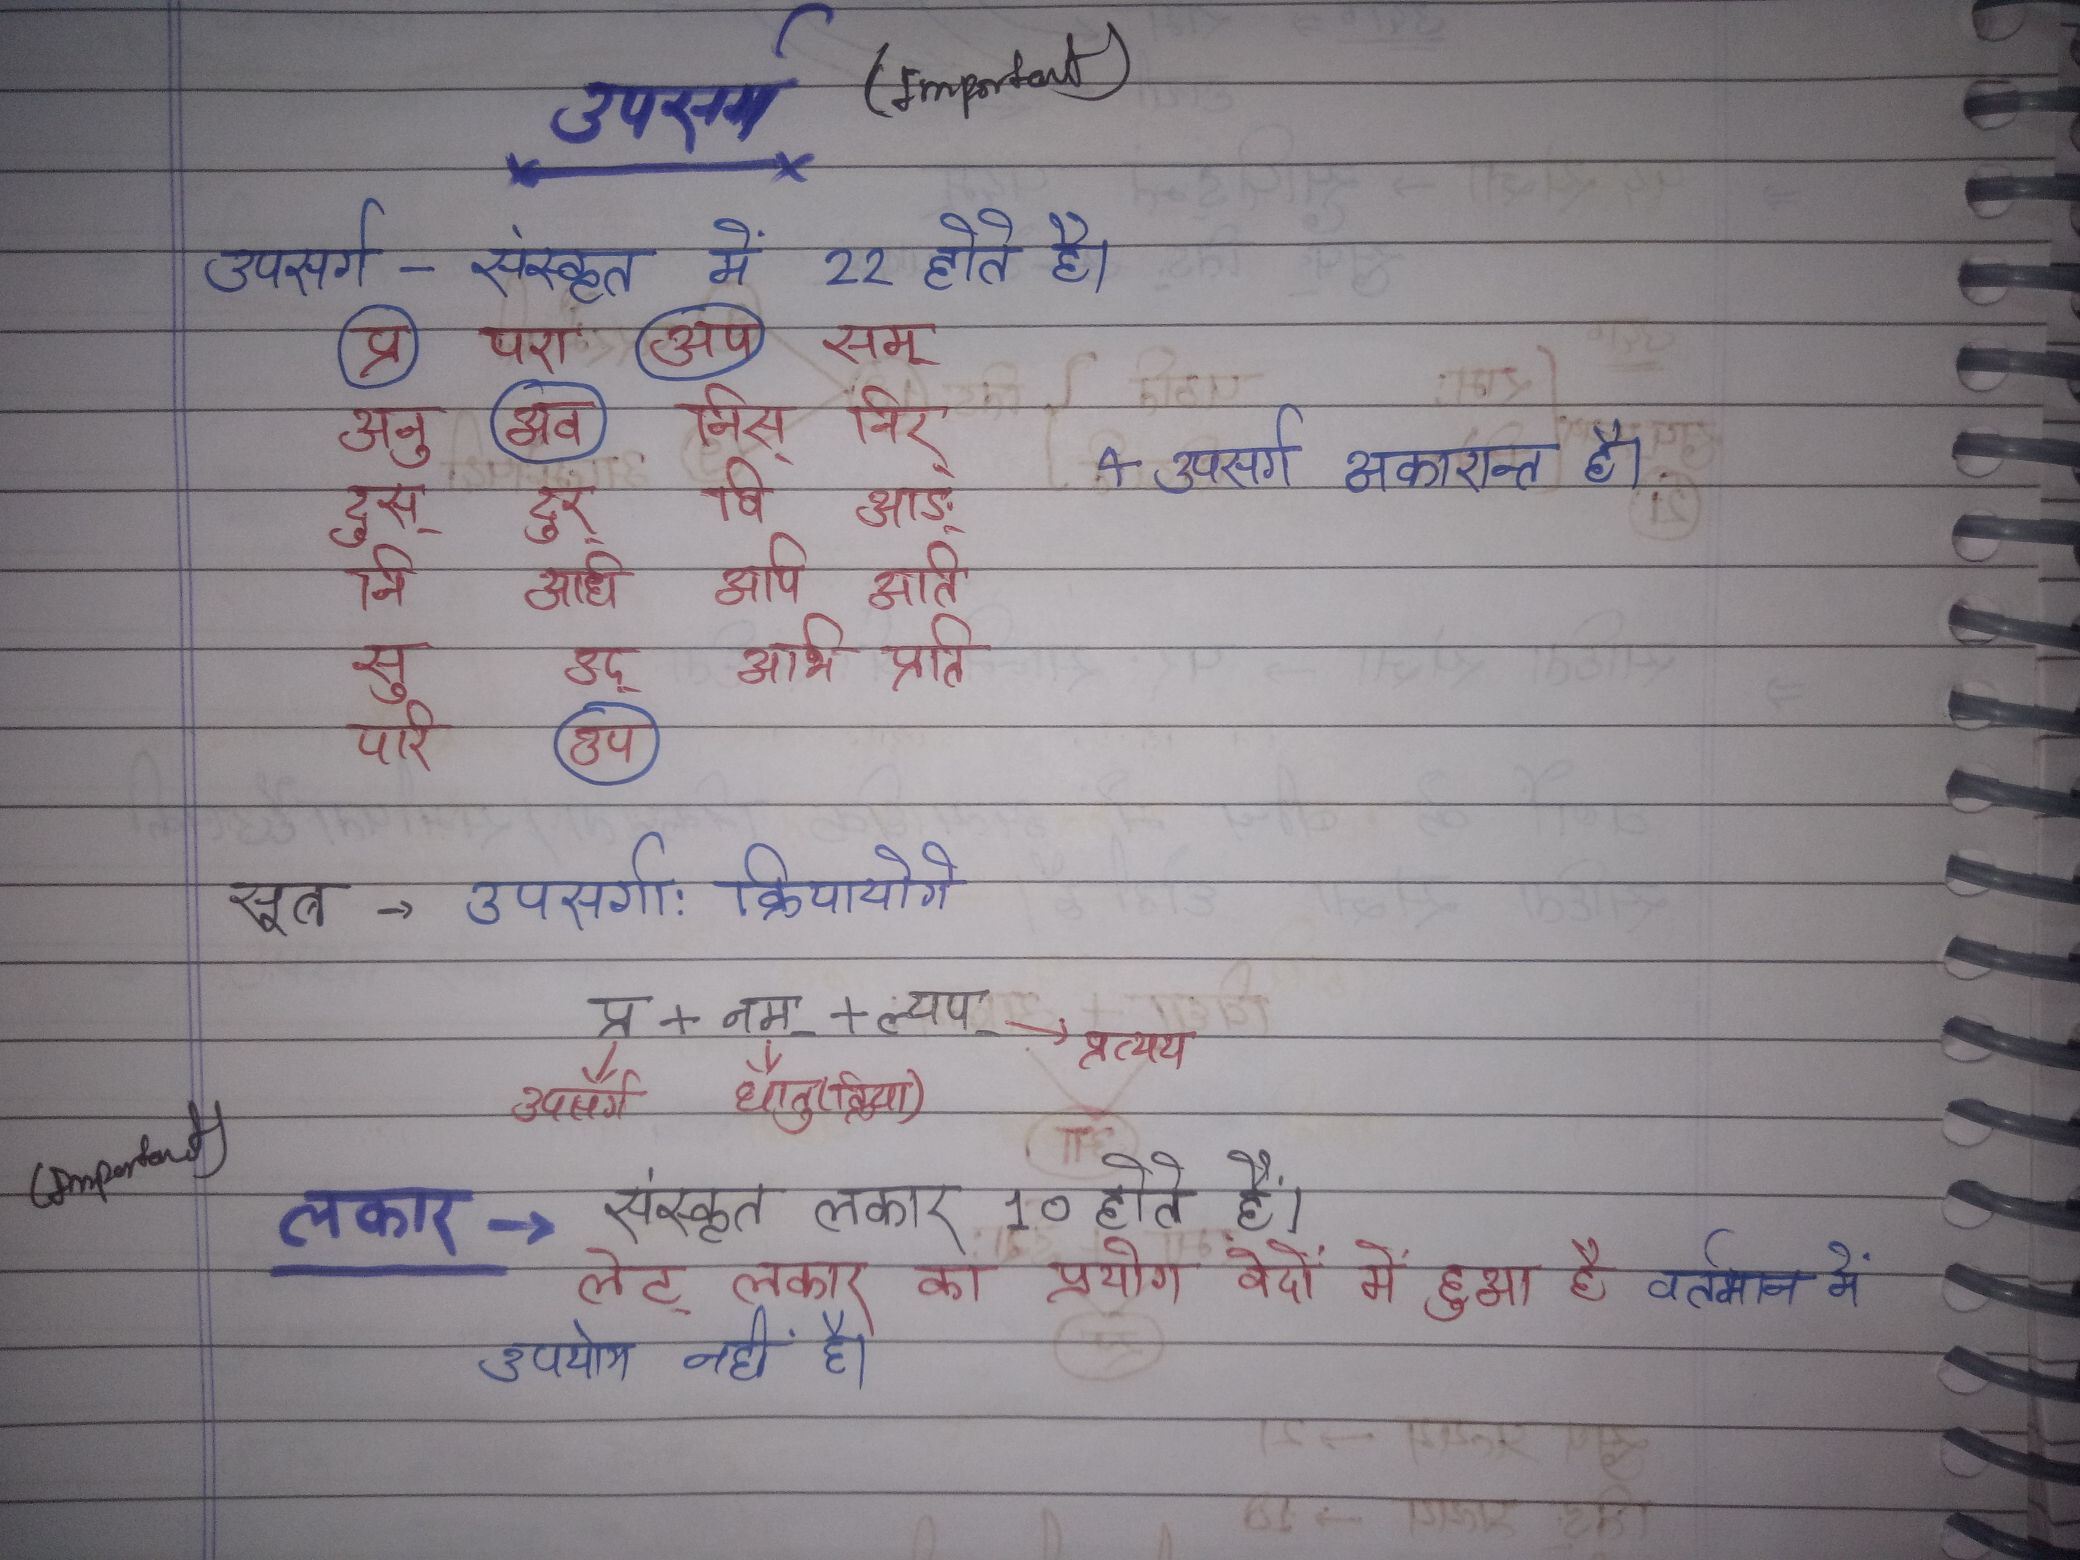 उपसर्ग (Important)
उपसर्ग - संस्कृत में 22 होते है।
प्र परा अप सम्
अनु अव निस् निर्
4 उपसर्ग अकारान्त है।
दुस् दुर् वि आङ्
नि अधि अपि अति
सु उद् अभि प्रति
परि उप
सूत्र → उपसर्गाः क्रियायोगे
प्र + नम् + ल्यप् → प्रत्यय
उपसर्ग धातु(क्रिया)
(Important)
लकार → संस्कृत लकार 10 होते हैं।
लेट् लकार का प्रयोग वेदों में हुआ है वर्तमान में
उपयोग नहीं है।